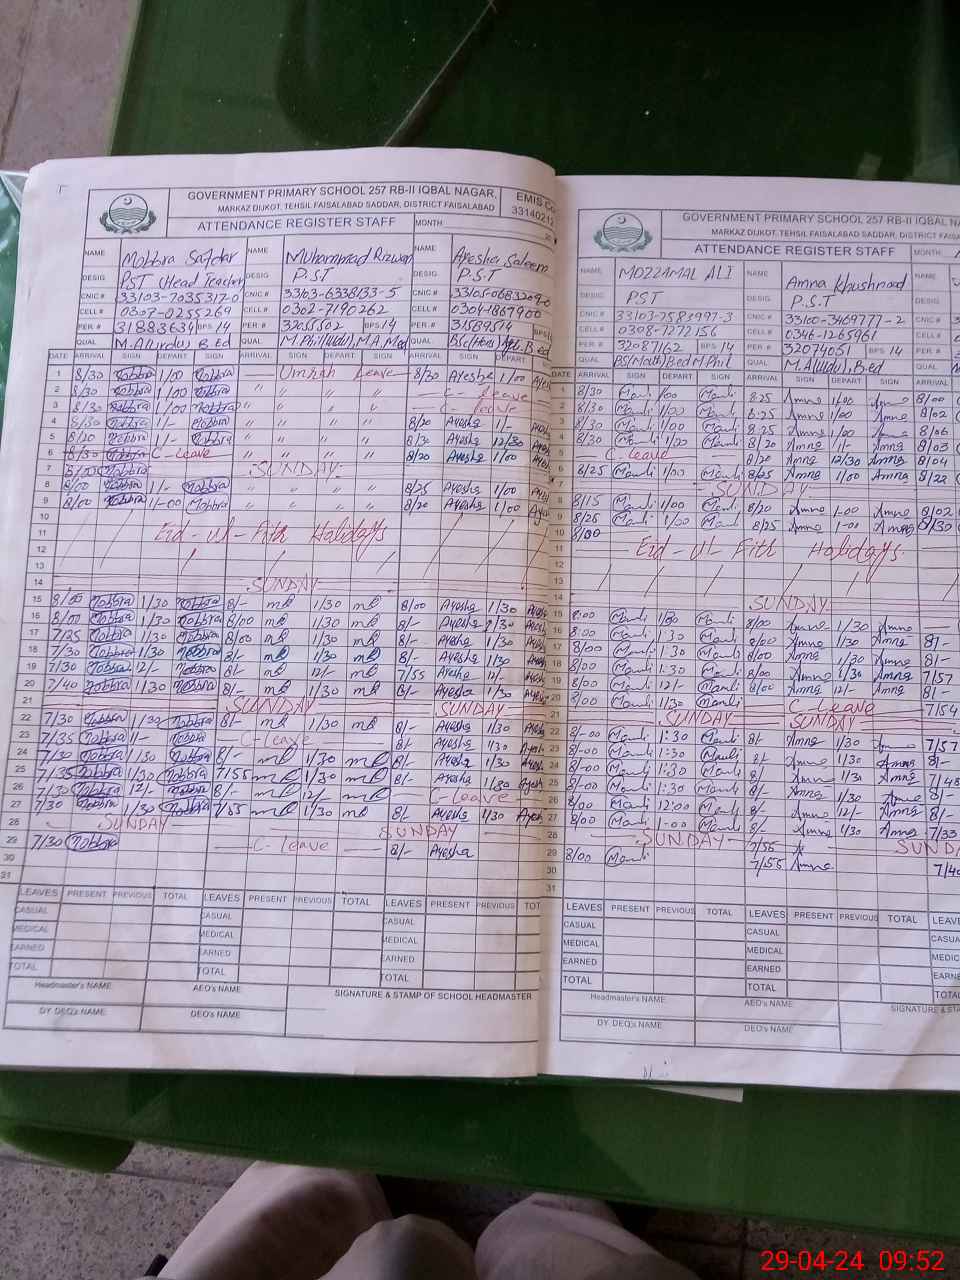 GOVERNMENT PRIMARY SCHOOL 257 RB-II IQBAL NAGAR,
MARKAZ DIJKOT, TEHSIL FAISALABAD SADDAR, DISTRICT FAISALABAD
EMIS Co
33140212
ATTENDANCE REGISTER STAFF
MONTH
NAME Mobbra Safdar NAME Muhammad Rizwan NAME Ayesha Saleem
DESIG PST (Head Teacher DESIG P.S.T DESIG P.S.T
CNIC # 33103-7035317-0 CNIC # 33103-6338133-5 CNIC # 33105-0683209-0
CELL # 0307-0255269 CELL # 0302-7190262 CELL # 0304-1867900
PER # 31883634 BPS 14 PER # 32055502 BPS 14 PER # 31589514 BPS
QUAL M.A(urdu), B.Ed QUAL M.Phil(urdu), M.A, Med QUAL Bsc(Hons) B.ed
DATE ARRIVAL SIGN DEPART SIGN ARRIVAL SIGN DEPART SIGN ARRIVAL SIGN DEPART
1 8/30 Mobbra 1/00 Mobbra Umrah Leave 8/30 Ayesha 1/00
2 8/30 Mobbra 1/00 Mobbra " " " " C- leave
3 8/30 Mobbra 1/00 Mobbra " " " " C- leave
4 8/30 Mobbra 1/- Mobbra " " " " 8/20 Ayesha 1/-
5 8/20 Mobbra 1/- Mobbra " " " " 8/30 Ayesha 12/30
6 8/30 Mobbra C-Leave " " " " 8/20 Ayesha 1/00
7 SUNDAY
8 8/00 Mobbra 1/- Mobbra " " " " 8/25 Ayesha 1/00
9 8/00 Mobbra 1/-00 Mobbra " " " " 8/20 Ayesha 1/00
10
11 Eid-ul-Fitr Holidays
12
13
14 SUNDAY
15 8/00 Mobbra 1/30 Mobbra 8/- 1/30 8/00 Ayesha 1/30
16 8/00 Mobbra 1/30 Mobbra 8/00 1/30 8/- Ayesha 1/30
17 7/25 Mobbra 1/30 Mobbra 8/00 1/30 8/- Ayesha 1/30
18 7/30 Mobbra 1/30 Mobbra 8/- 1/30 8/- Ayesha 1/30
19 7/30 Mobbra 12/- Mobbra 8/- 12/- 7/55 Ayesha 12/-
20 7/40 Mobbra 1/30 Mobbra 8/- 1/30 8/- Ayesha 1/30
21 SUNDAY SUNDAY
22 7/30 Mobbra 1/30 Mobbra 8/- 1/30 8/- Ayesha 1/30
23 7/35 Mobbra 1/- Mobbra C-Leave 8/- Ayesha 1/30
24 7/30 Mobbra 1/30 Mobbra 8/- 1/30 8/- Ayesha 1/30
25 7/35 Mobbra 1/30 Mobbra 7/55 1/30 8/- Ayesha 1/30
26 7/30 Mobbra 12/- Mobbra 8/- 12/- C-Leave
27 7/30 Mobbra 1/30 Mobbra 7/55 1/30 8/- Ayesha 1/30
28 SUNDAY SUNDAY
29 7/30 Mobbra C-leave 8/- Ayesha
30
31
LEAVES PRESENT PREVIOUS TOTAL LEAVES PRESENT PREVIOUS TOTAL LEAVES PRESENT PREVIOUS TOT
CASUAL CASUAL CASUAL
MEDICAL MEDICAL MEDICAL
EARNED EARNED EARNED
TOTAL TOTAL TOTAL
Headmaster's NAME AEO's NAME SIGNATURE & STAMP OF SCHOOL HEADMASTER
DY. DEO's NAME DEO's NAME
GOVERNMENT PRIMARY SCHOOL 257 RB-II IQBAL NA
MARKAZ DIJKOT, TEHSIL FAISALABAD SADDAR, DISTRICT FAISA
ATTENDANCE REGISTER STAFF
MONTH
NAME MOZZAMAL ALI NAME Amna Khushnood
DESIG PST DESIG P.S.T
CNIC # 33103-7583997-3 CNIC # 33100-3469777-2 CNIC #
CELL # 0308-7272156 CELL # 0346-1265961 CELL #
PER # 32087162 BPS 14 PER # 32074051 BPS 14 PER #
QUAL BS(Math) B.ed M.Phil QUAL M.A(urdu), B.ed QUAL
DATE ARRIVAL SIGN DEPART SIGN ARRIVAL SIGN DEPART SIGN ARRIVAL
1 8/30 1/00 8:25 Amna 1/00 Amna 8/00
2 8/30 1/00 8:25 Amna 1/00 Amna 8/02
3 8/30 1/00 8:25 Amna 1/00 Amna 8/06
4 8/30 1/00 8/20 Amna 1/- Amna 8/03
5 C-Leave 8/20 Amna 12/30 Amna 8/04
6 8/25 1/00 8/25 Amna 1/00 Amna 8/22
7 SUNDAY
8 8/15 1/00 8/20 Amna 1-00 Amna 8/02
9 8/25 1/00 8/25 Amna 1-00 Amna 8/30
10 8/00
11 Eid-ul-Fith Holidays
12
13
14 SUNDAY
15 8:00 1/30 8/00 Amna 1/30 Amna
16 8:00 1:30 8/00 Amna 1/30 Amna 8/-
17 8/00 1:30 8/00 Amna 1/30 Amna 8/-
18 8/00 1:30 8/00 Amna 1/30 Amna 7/57
19 8/00 12/- 8/00 Amna 12/- Amna 8/-
20 8/00 1:30 C-Leave 7/54
21 SUNDAY SUNDAY
22 8/-00 1:30 8/- Amna 1/30 Amna 7/57
23 8/-00 1:30 8/- Amna 1/30 Amna 8/-
24 8/-00 1:30 8/- Amna 1/30 Amna 7/48
25 8/-00 1:30 8/- Amna 1/30 Amna 8/-
26 8/00 12:00 8/- Amna 12/- Amna 8/-
27 8/00 1-00 8/- Amna 1/30 Amna 7/33
28 SUNDAY 7/55 SUNDA
29 8/00 7/55 Amna 7/40
30
31
LEAVES PRESENT PREVIOUS TOTAL LEAVES PRESENT PREVIOUS TOTAL LEAVE
CASUAL CASUAL CASUA
MEDICAL MEDICAL MEDICA
EARNED EARNED EARNE
TOTAL TOTAL TOTAL
Headmaster's NAME AEO's NAME SIGNATURE & STA
DY. DEO's NAME DEO's NAME
29-04-24 09:52